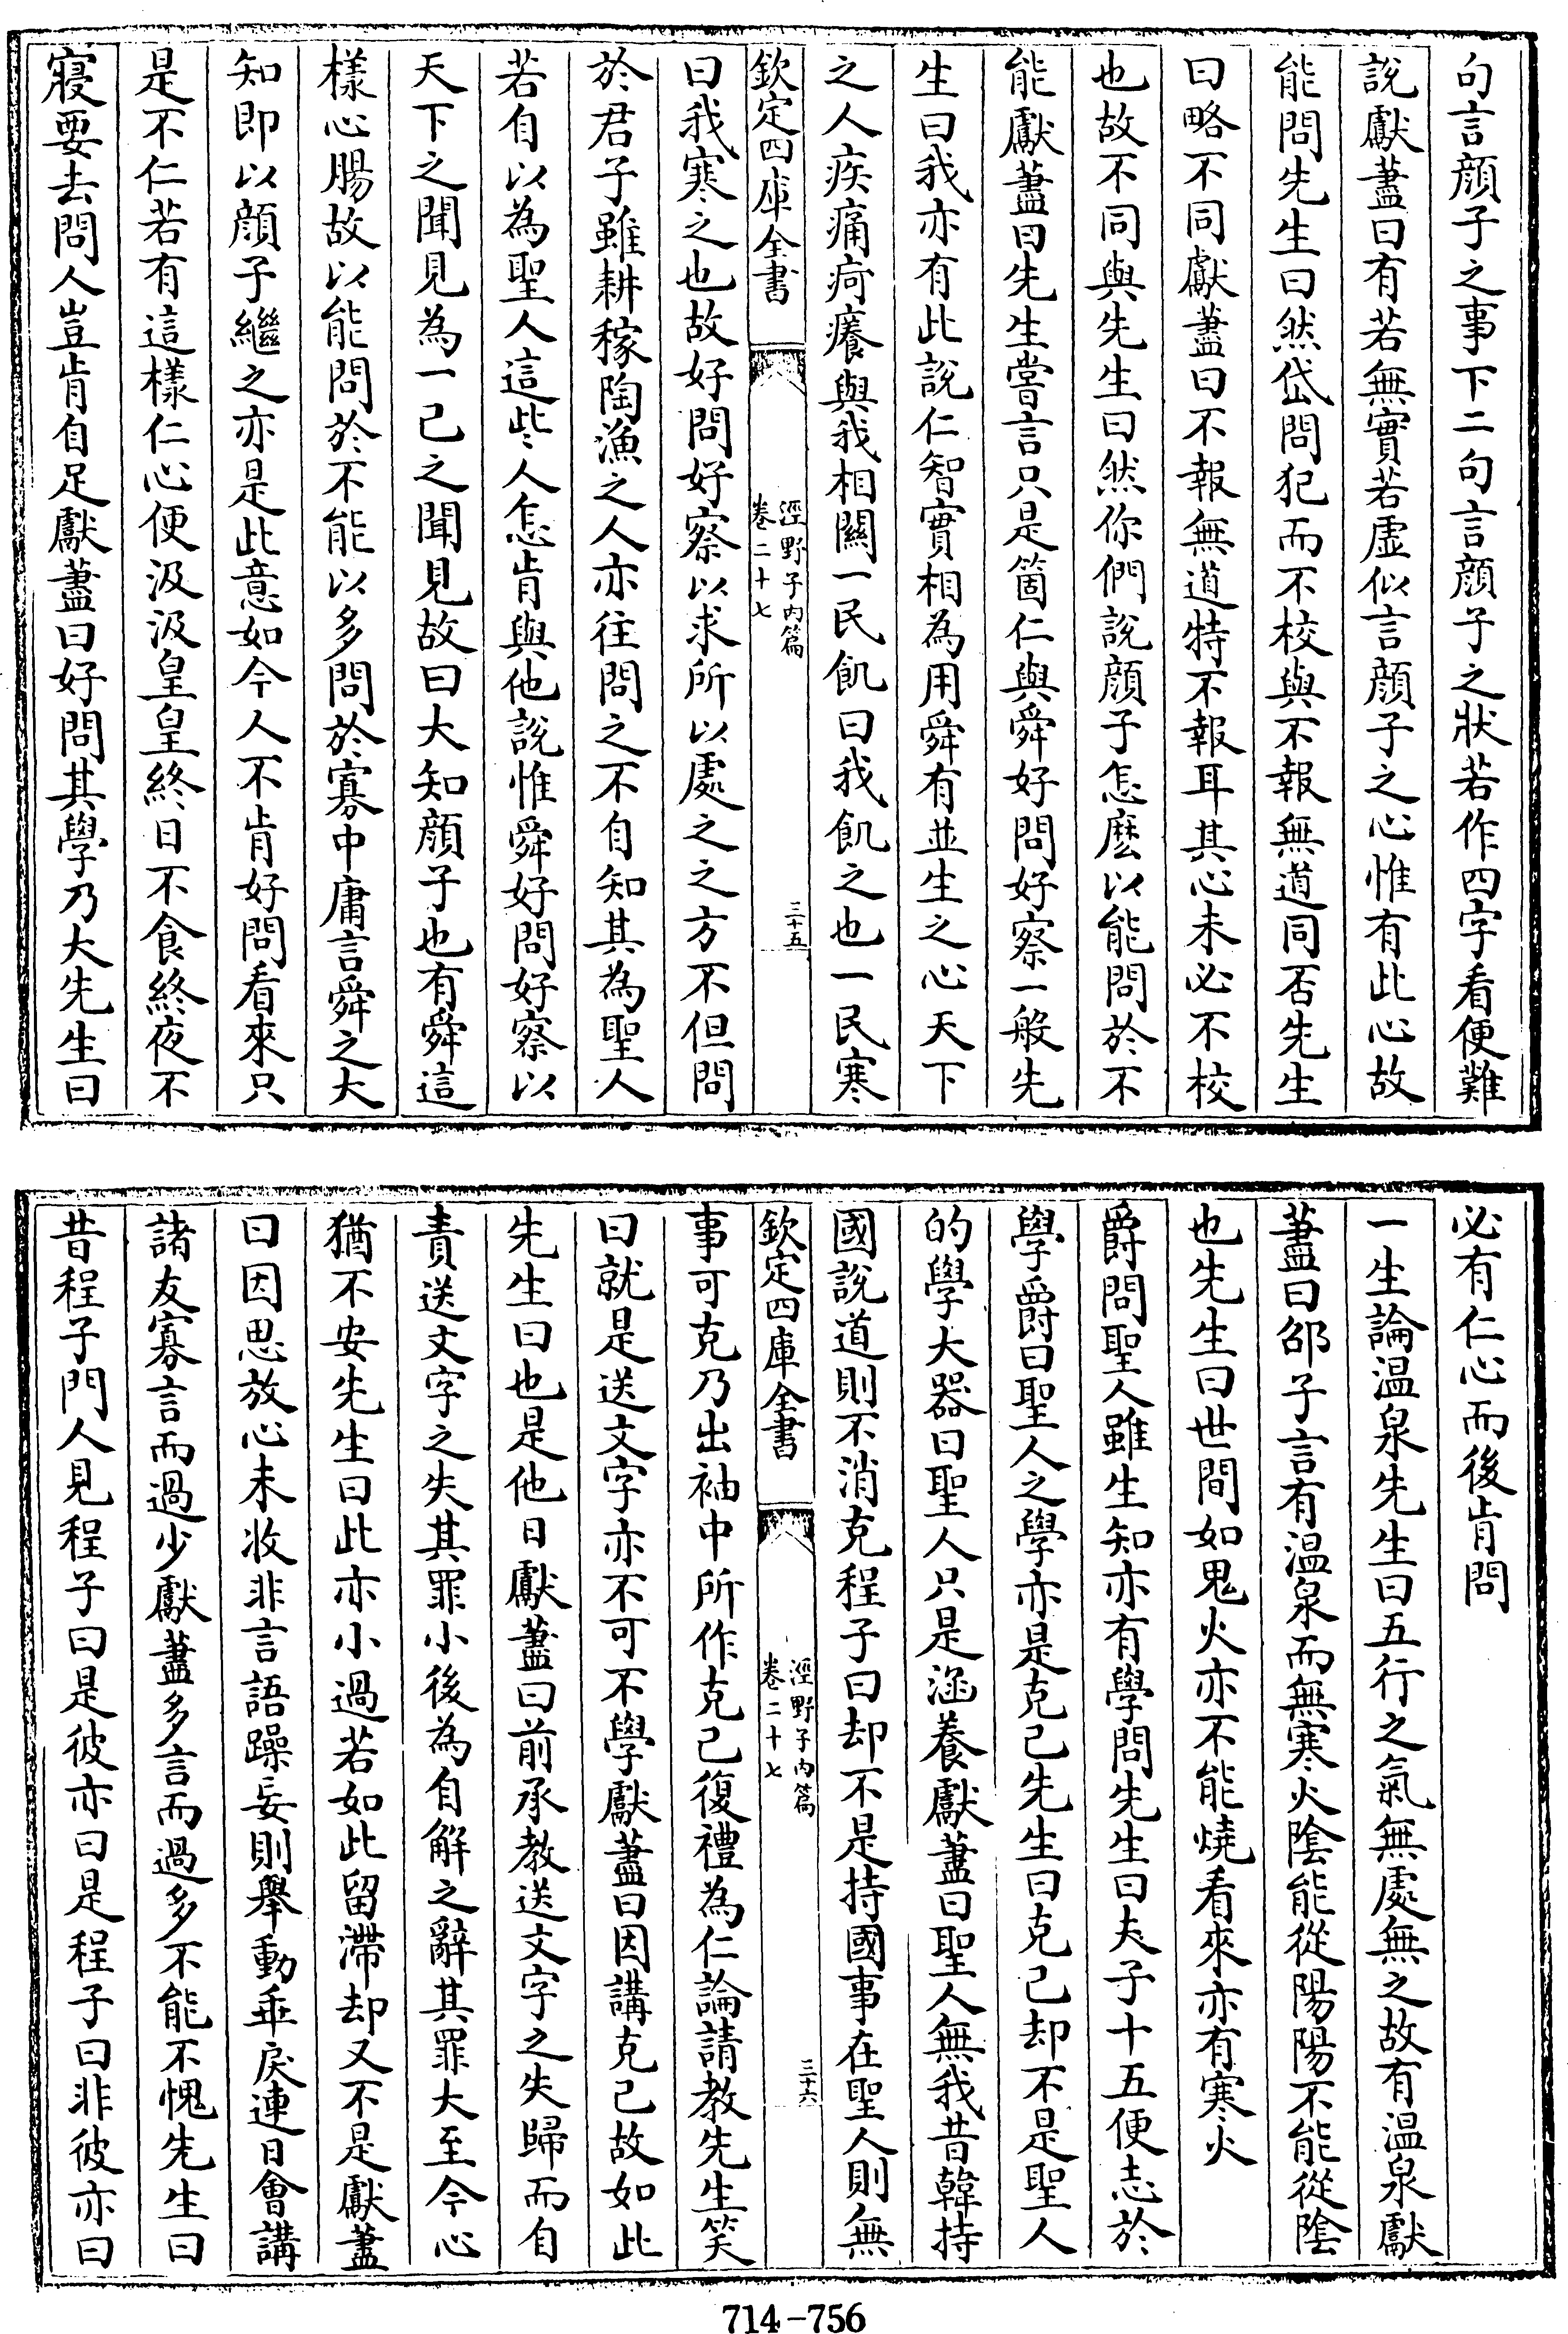 句言顔子之事下二句言顔子之狀若作四字看便難
說獻藎曰有若無實若虚似言顔子之心惟有此心故
能問先生曰然岱問犯而不校與不報無道同否先生
曰略不同獻藎曰不報無道特不報耳其心未必不校
也故不同與先生曰然你們說顔子怎麽以能問於不
能獻藎曰先生嘗言只是箇仁與舜好問好察一般先
生曰我亦有此說仁智實相為用舜有並生之心天下
之人疾痛疴癢與我相關一民飢曰我飢之也一民寒
欽定四庫全書
涇野子内篇
卷二十七
三十五
曰我寒之也故好問好察以求所以處之之方不但問
於君子雖耕稼陶漁之人亦往問之不自知其為聖人
若自以為聖人這些人怎肯與他說惟舜好問好察以
天下之聞見為一己之聞見故曰大知顔子也有舜這
樣心腸故以能問於不能以多問於寡中庸言舜之大
知即以顔子繼之亦是此意如今人不肯好問看來只
是不仁若有這樣仁心便汲汲皇皇終日不食終夜不
寢要去問人豈肯自足獻藎曰好問其學乃大先生曰
必有仁心而後肯問
一生論温泉先生曰五行之氣無處無之故有温泉獻
藎曰邵子言有温泉而無寒火陰能從陽陽不能從陰
也先生曰世間如鬼火亦不能燒看來亦有寒火
爵問聖人雖生知亦有學問先生曰夫子十五便志於
學爵曰聖人之學亦是克己先生曰克己却不是聖人
的學大器曰聖人只是涵養獻藎曰聖人無我昔韓持
國說道則不消克程子曰却不是持國事在聖人則無
欽定四庫全書
涇野子内篇
卷二十七
三十六
事可克乃出袖中所作克己復禮為仁論請教先生笑
曰就是送文字亦不可不學獻藎曰因講克己故如此
先生曰也是他日獻藎曰前承教送文字之失歸而自
責送文字之失其罪小後為自解之辭其罪大至今心
猶不安先生曰此亦小過若如此留滯却又不是獻藎
曰因思放心未收非言語躁妄則舉動乖戾連日會講
諸友寡言而過少獻藎多言而過多不能不愧先生曰
昔程子門人見程子曰是彼亦曰是程子曰非彼亦曰
714-756